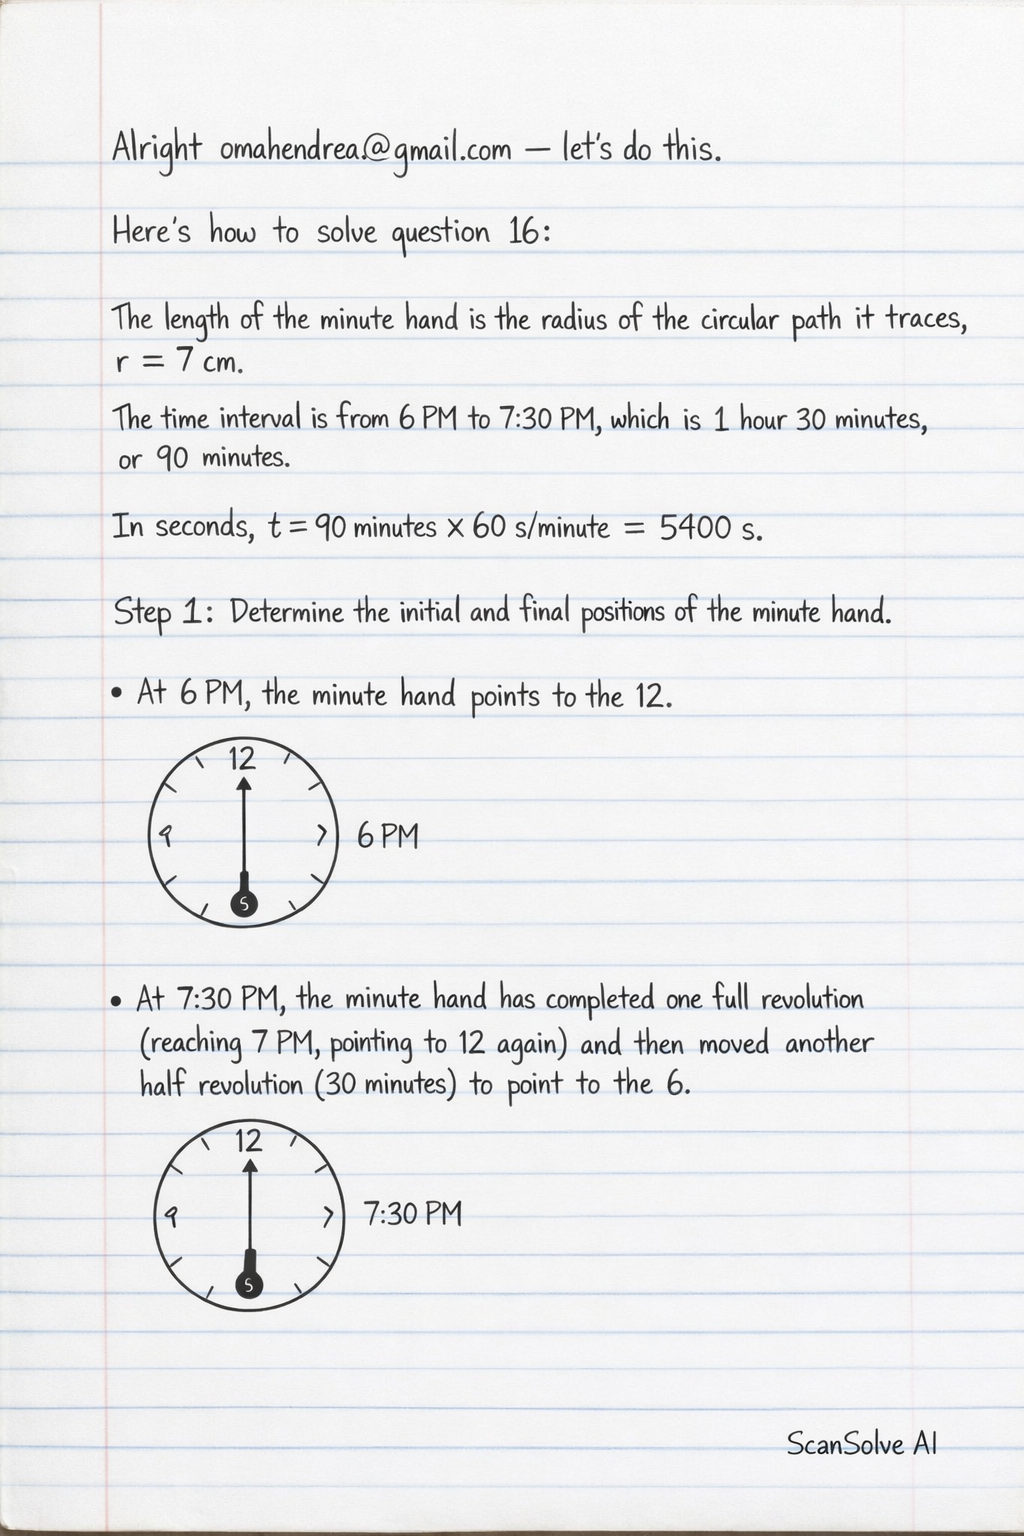 Alright omahendrea.@gmail.com — let's do this.
Here's how to solve question 16:
The length of the minute hand is the radius of the circular path it traces,
r = 7 cm.
The time interval is from 6 PM to 7:30 PM, which is 1 hour 30 minutes,
or 90 minutes.
In seconds, t = 90 minutes × 60 s/minute = 5400 s.
Step 1: Determine the initial and final positions of the minute hand.
• At 6 PM, the minute hand points to the 12.
12
9
S
6 PM
• At 7:30 PM, the minute hand has completed one full revolution
(reaching 7 PM, pointing to 12 again) and then moved another
half revolution (30 minutes) to point to the 6.
12
9
S
7:30 PM
ScanSolve AI